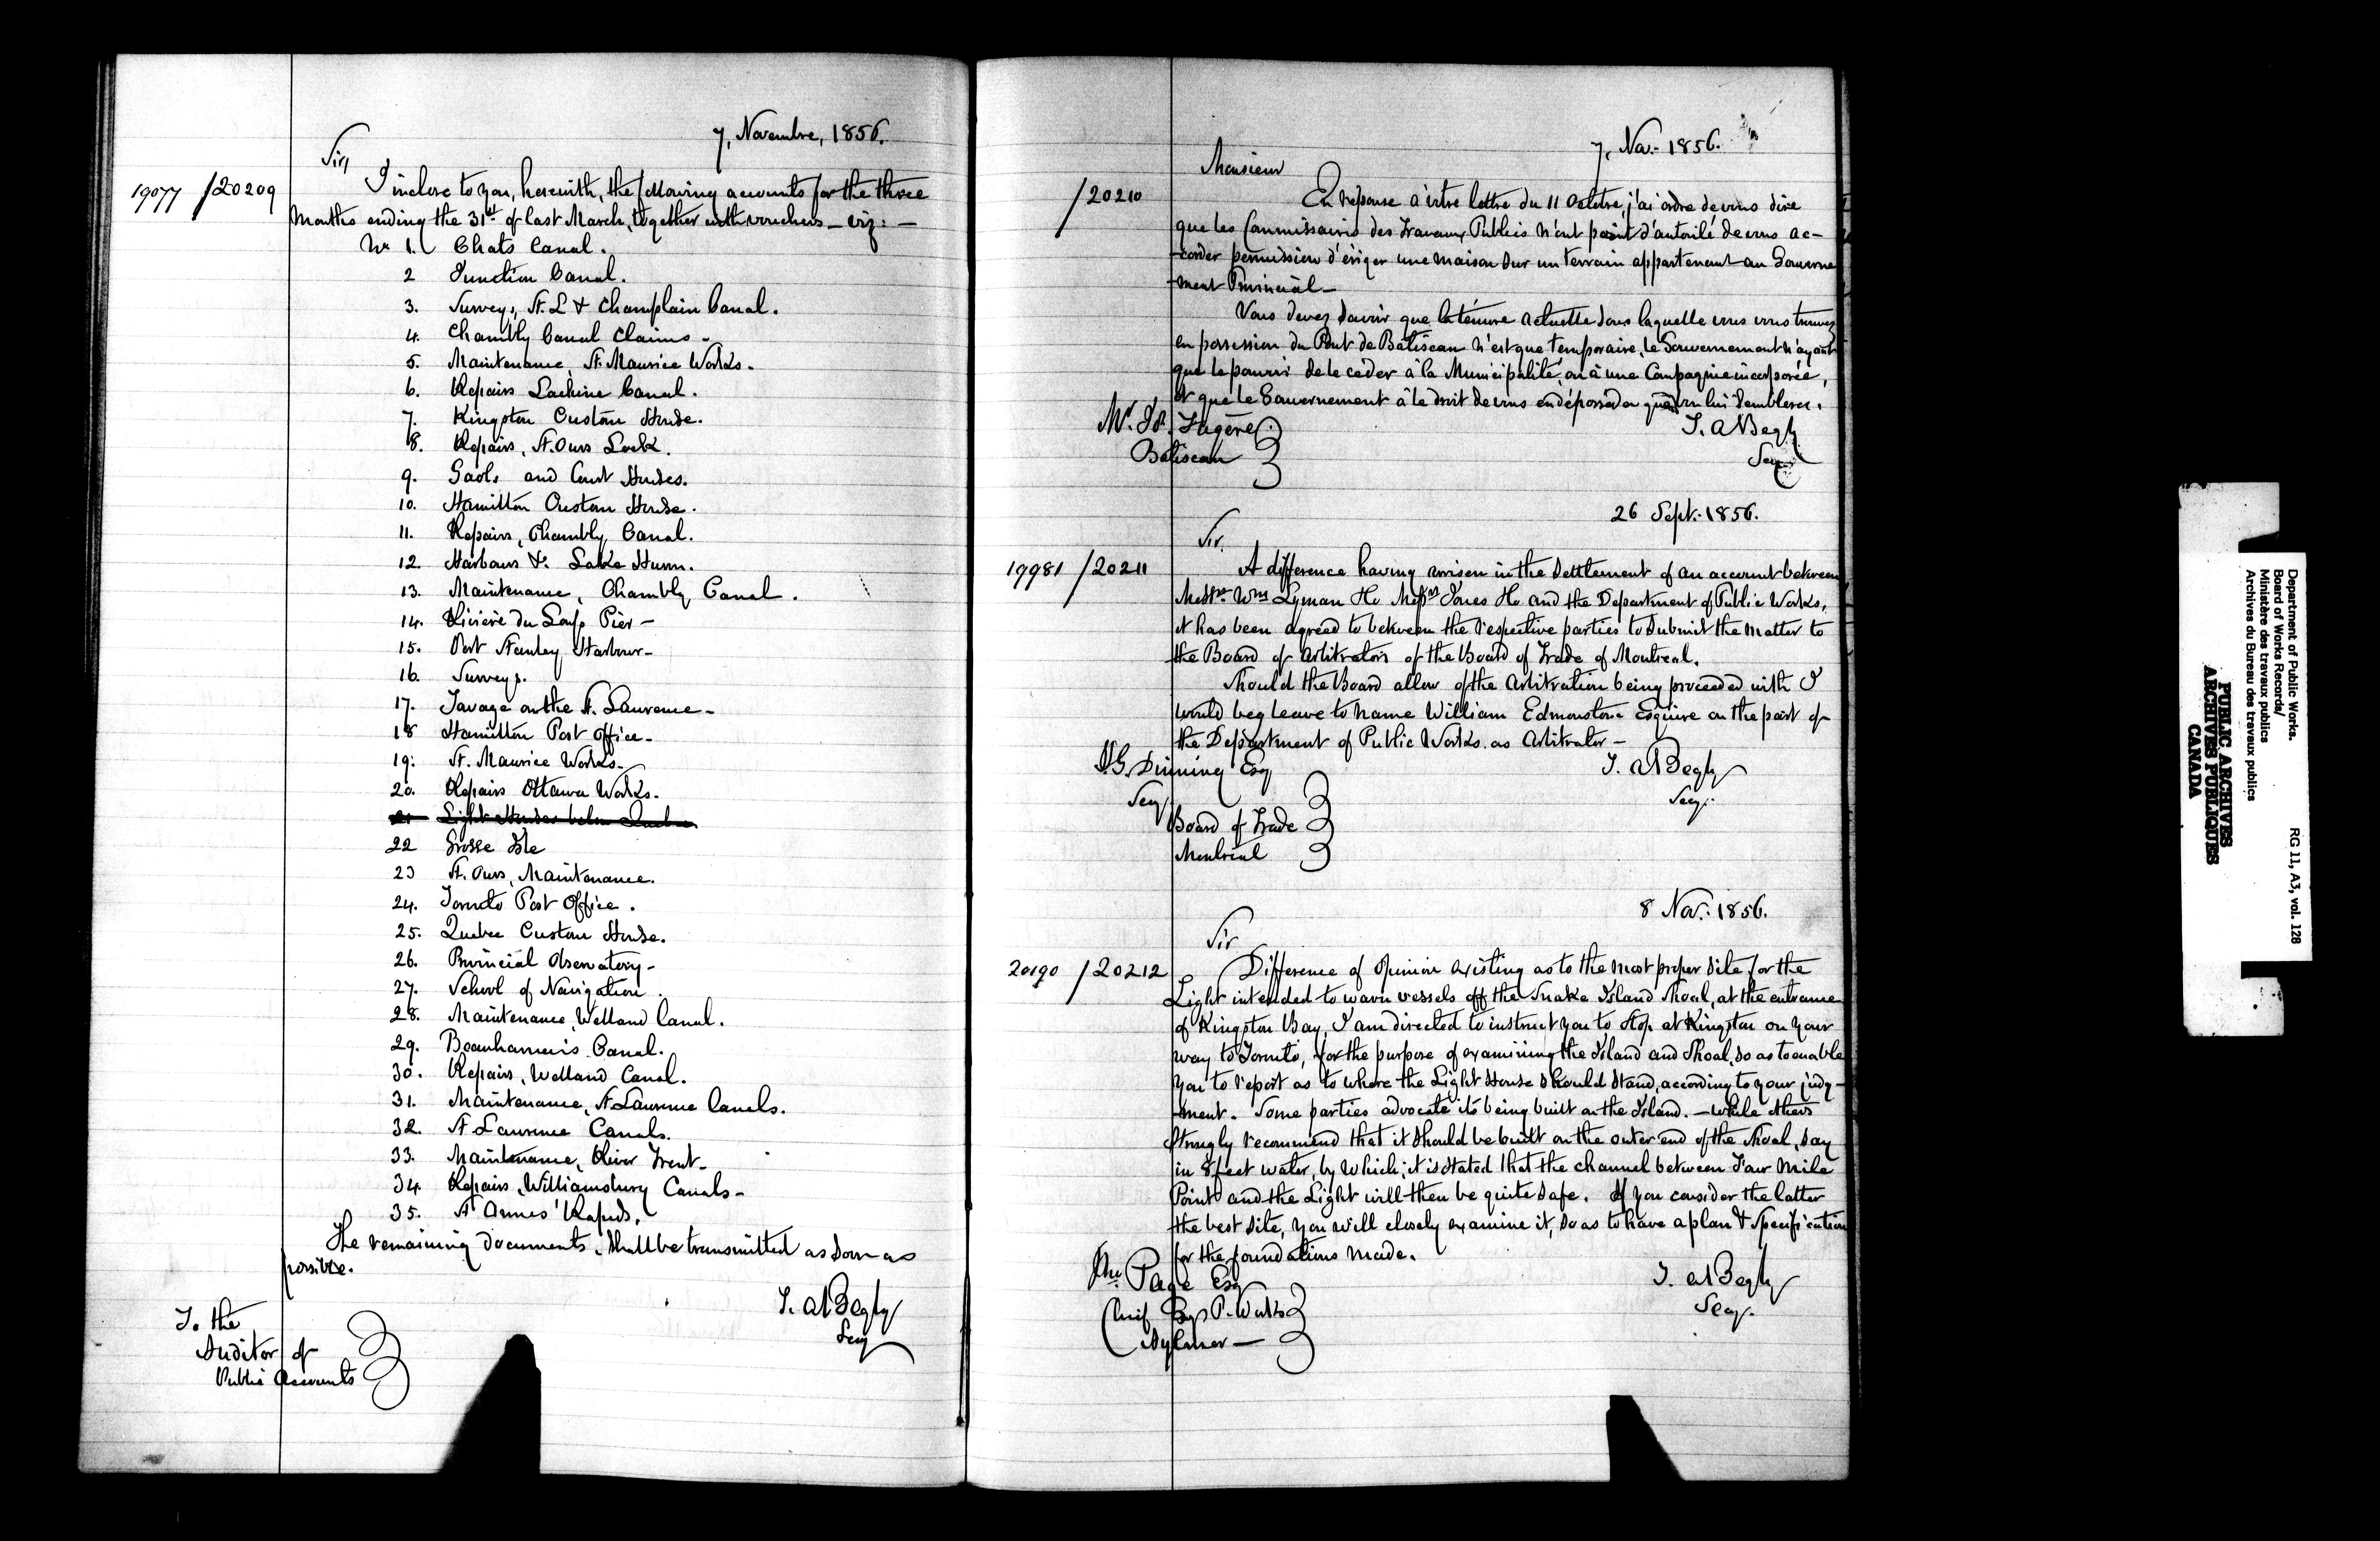 7, Novembre, 1856.
Sir,
19077 /20209
I inclose to you, herewith, the following accounts for the three
months ending the 31st of last March, together with vouchers - viz: -
No 1. Chats Canal.
2 Junction Canal.
3. Surveys, St. L & Champlain Canal.
4. Chambly Canal Claims -
5. Maintenance, St. Maurice Works.
6. Repairs Lachine Canal.
7. Kingston Custom House.
8. Repairs, St. Ours Lock.
9. Gaols and Court Houses.
10. Hamilton Custom House.
11. Repairs, Chambly Canal.
12. Harbours &c Lake Huron.
13. Maintenance, Chambly Canal.
14. Rivière du Loup Pier -
15. Port Stanley Harbour -
16. Surveys.
17. Towage on the St. Lawrence -
18 Hamilton Post Office -
19. St. Maurice Works -
20. Repairs Ottawa Works.
21 Light Houses below Quebec
22 Grosse Isle
23 St. Ours, Maintenance.
24. Toronto Post Office.
25. Quebec Custom House.
26. Provincial Observatory -
27. School of Navigation.
28. Maintenance, Welland Canal.
29. Beauharnois Canal.
30. Repairs, Welland Canal.
31. Maintenance, St Lawrence Canals.
32. St Lawrence Canals.
33. Maintenance, River Trent -
34 Repairs, Williamsburg Canals -
35. St Annes' Rapids.
The remaining documents, shall be transmitted as soon as
possible.
T. A Begly
Secy
To the
Auditor of
Public Accounts
7, Nov.- 1856.
Monsieur
/20210
En réponse à votre lettre du 11 Octobre, j'ai ordre de vous dire
que les Commissaires des Travaux Publics n'ont point d'autorité de vous ac-
-corder permission d'ériger une maison sur un terrain appartenant au Gouverne
-ment Provincial -
Vous devez savoir que la ténure actuelle sous laquelle vous vous trouvez
en possession du Pont de Batiscan n'est que temporaire, le Gouvernement n'ayant
que le pouvoir de le céder à la Municipalité, ou à une Compagnie incorporée,
et que le Gouvernement à le droit de vous en déposséder quand bon lui semblera.
Mr.
Batiscan
T. A Begly
Secy
26 Sept. 1856.
Sir,
19981 /20211
A difference having arisen in the settlement of an account between
Messrs. Wm Lyman & Co Messrs Jones & Co and the Department of Public Works,
it has been agreed to between the respective parties to submit the matter to
the Board of Arbitrators of the Board of Trade of Montreal.
Should the Board allow of the Arbitration being proceeded with I
would beg leave to name William Edmonstone Esquire on the part of
the Department of Public Works as Arbitrator -
Dinning Esq
Secy
Board of Trade
Montreal
T. A Begly
Secy.
8 Nov. 1856.
Sir
20190 /20212
Difference of Opinion existing as to the most proper site for the
Light intended to warn vessels off the Snake Island Shoal, at the entrance
of Kingston Bay, I am directed to instruct you to stop at Kingston on your
way to Toronto, for the purpose of examining the Island and Shoal, so as to enable
you to report as to where the Light House should stand, according to your judg-
-ment. Some parties advocate its being built on the Island. - while others
strongly recommend that it should be built on the outer end of the Shoal, say
in 8 feet water, by which, it is stated that the channel between Four Mile
Point and the Light will then be quite safe. If you consider the latter
the best site, you will closely examine it, so as to have a plan & Specification
for the foundations made.
Jno Page Esq
Chief Engr P. Works
Aylmer -
T. A Begly
Secy.
Department of Public Works.
Board of Works Records/
Ministère des travaux publics
Archives du Bureau des travaux publics
RG 11, A3, vol. 128
PUBLIC ARCHIVES
ARCHIVES PUBLIQUES
CANADA